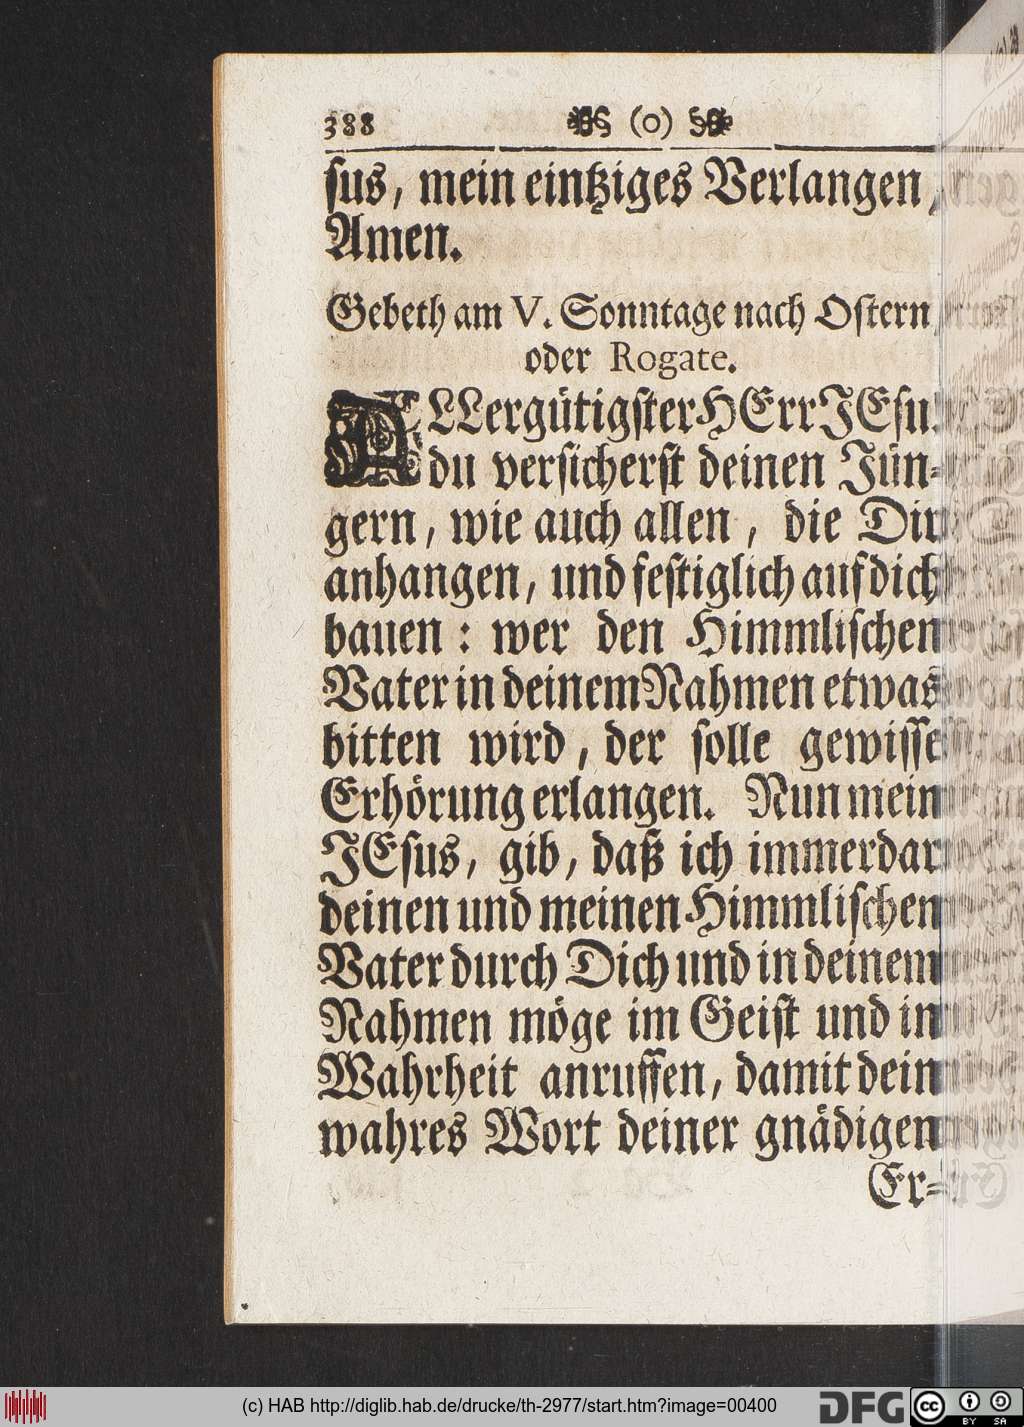 388 (o)
sus, mein eintziges Verlangen,
Amen.
Gebeth am V. Sonntage nach Ostern
oder Rogate.
ALLergütigster HErr JEsu
du versicherst deinen Jün-
gern, wie auch allen, die Dir
anhangen, und festiglich auf dich
bauen: wer den Himmlischen
Vater in deinem Nahmen etwas
bitten wird, der solle gewisse
Erhörung erlangen. Nun mein
JEsus, gib, daß ich immerdar
deinen und meinen Himmlischen
Vater durch Dich und in deinem
Nahmen möge im Geist und in
Wahrheit anruffen, damit dein
wahres Wort deiner gnädigen
Er-
(c) HAB http://diglib.hab.de/drucke/th-2977/start.htm?image=00400
DFG
cc BY SA